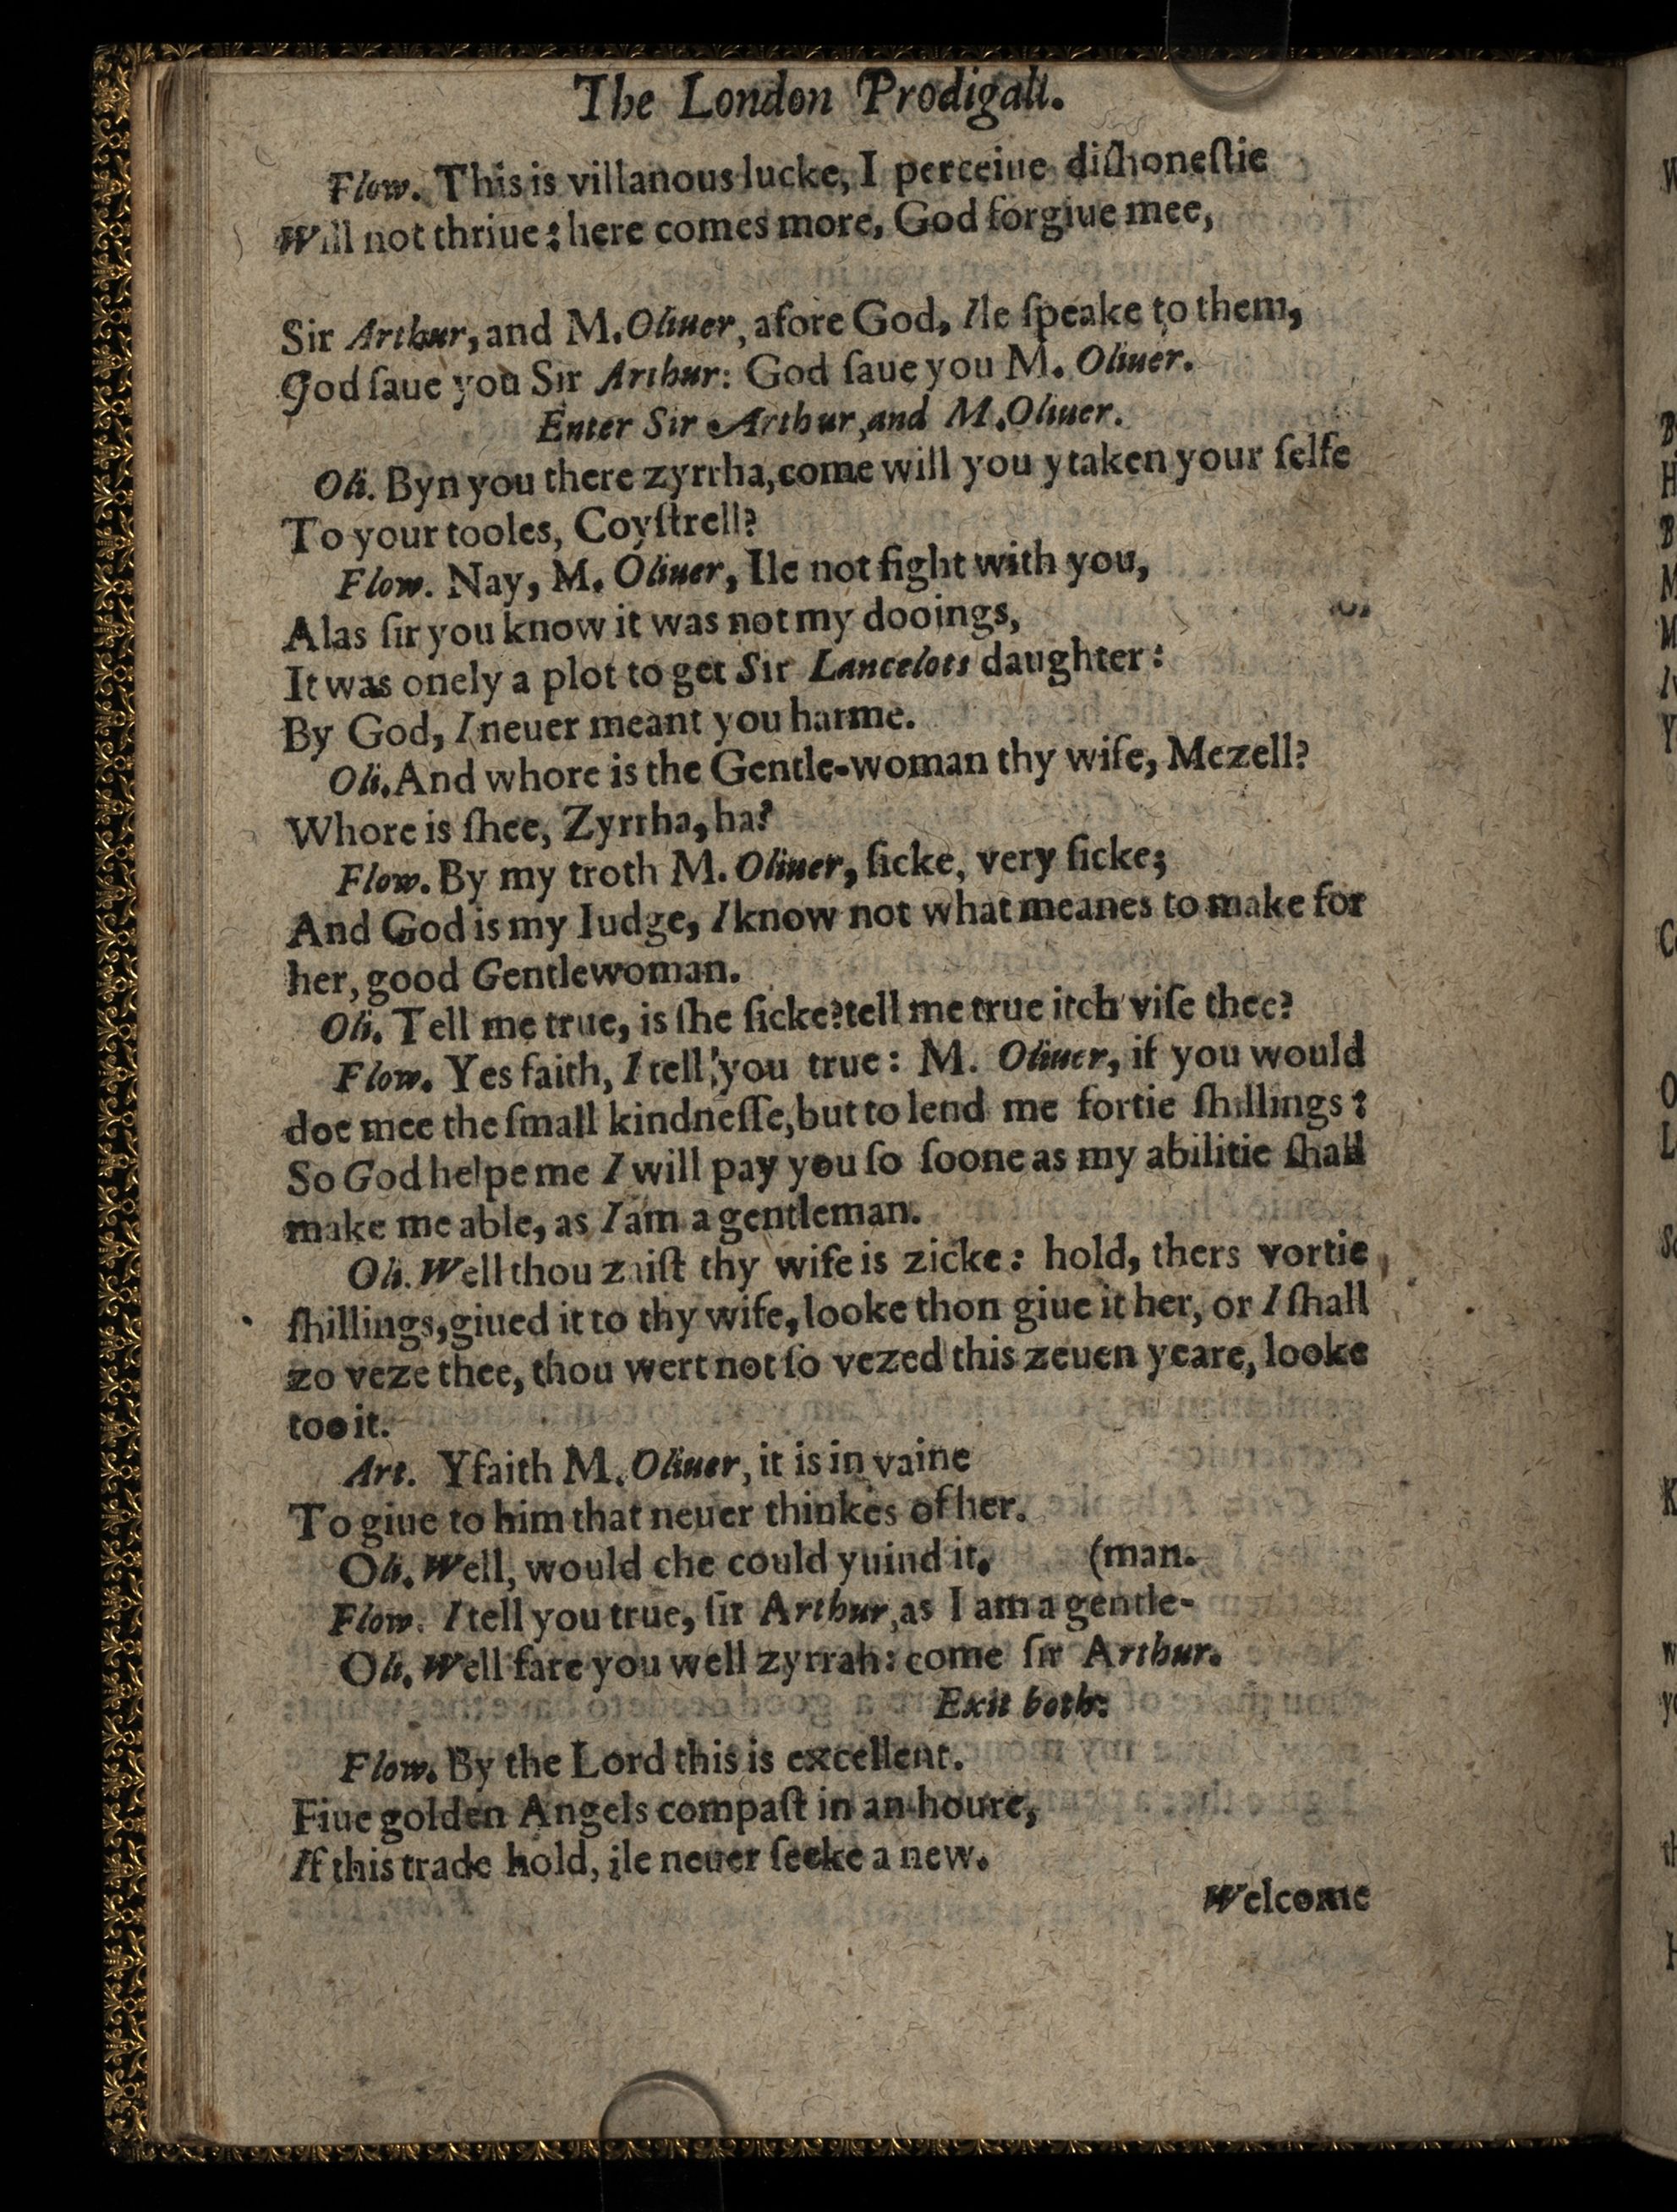 The London Prodigall.
Flow. This is villanous lucke, I perceiue diſhoneſtie
Will not thriue: here comes more, God forgiue mee,
Sir Arthur, and M. Oliuer, afore God, Ile ſpeake to them,
God ſaue you Sir Arthur: God ſaue you M. Oliuer.
Enter Sir Arthur, and M. Oliuer.
Oli. Byn you there zyrrha, come will you ytaken your ſelfe
To your tooles, Coyſtrell?
Flow. Nay, M. Oliuer, Ile not fight with you,
Alas ſir you know it was not my dooings,
It was onely a plot to get Sir Lancelots daughter:
By God, I neuer meant you harme.
Oli. And whore is the Gentle-woman thy wife, Mezell?
Whore is ſhee, Zyrrha, ha?
Flow. By my troth M. Oliuer, ſicke, very ſicke;
And God is my Iudge, I know not what meanes to make for
her, good Gentlewoman.
Oli. Tell me true, is ſhe ſicke? tell me true itch' viſe thee?
Flow. Yes faith, I tell you true: M. Oliuer, if you would
doe mee the ſmall kindneſſe, but to lend me fortie ſhillings:
So God helpe me I will pay you ſo ſoone as my abilitie ſhall
make me able, as I am a gentleman.
Oli. Well thou zaiſt thy wife is zicke: hold, thers vortie
ſhillings, giued it to thy wife, looke thon giue it her, or I ſhall
zo veze thee, thou wert not ſo vezed this zeuen yeare, looke
too it.
Art. Yfaith M. Oliuer, it is in vaine
To giue to him that neuer thinkes of her.
Oli. Well, would che could yuind it. (man.
Flow. I tell you true, ſir Arthur, as I am a gentle-
Oli. Well fare you well zyrrah: come ſir Arthur.
Exit both:
Flow. By the Lord this is excellent.
Fiue golden Angels compaſt in an houre,
If this trade hold, ile neuer ſeeke a new.
Welcome